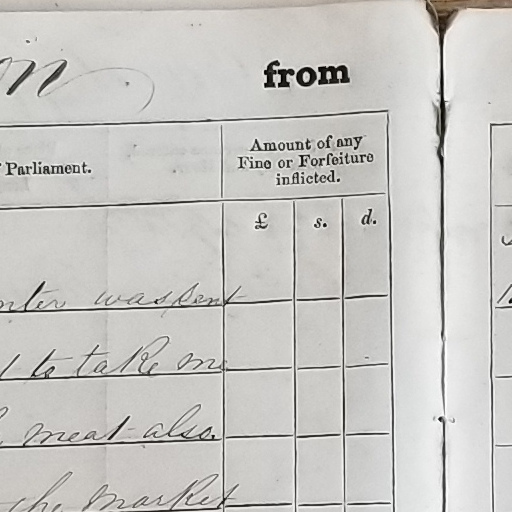 from
Parliament.
Amount of any
Fine or Forfeiture
inflicted.
£ s. d.
was sent
to take me
meat also.
the market